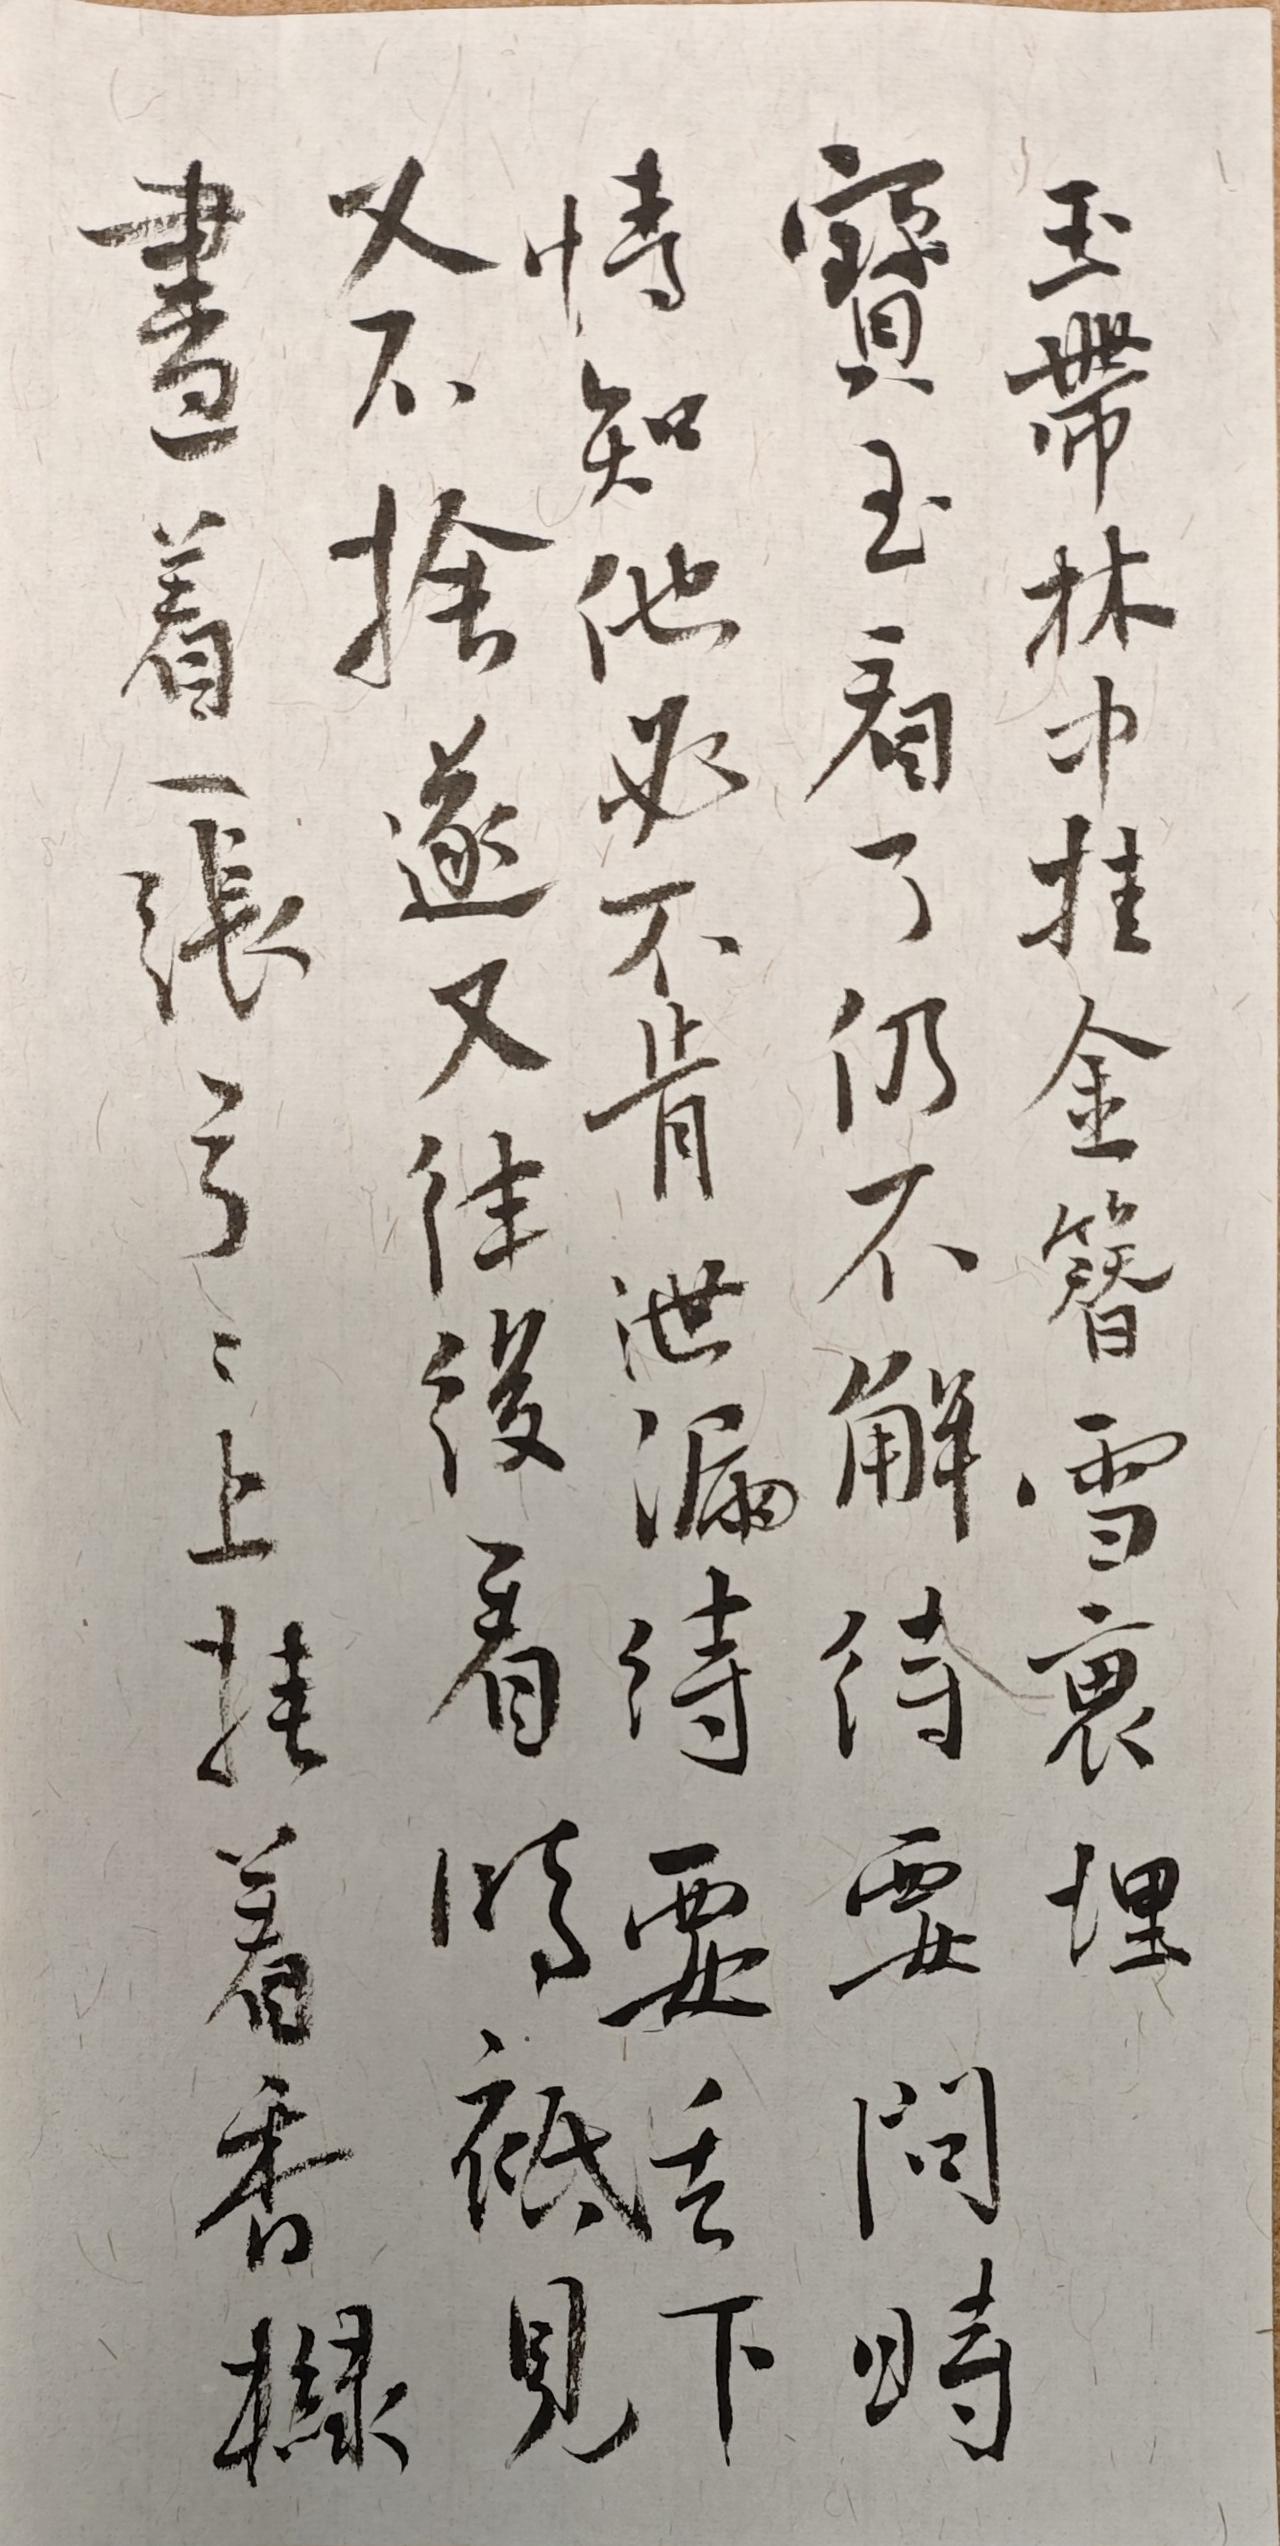 玉帶林中挂金簪雪裏埋
寶玉看了仍不解待要問時
情知他必不肯泄漏待要丟下
又不捨遂又往後看時祇見
畫着一張弓〻上挂着香櫞